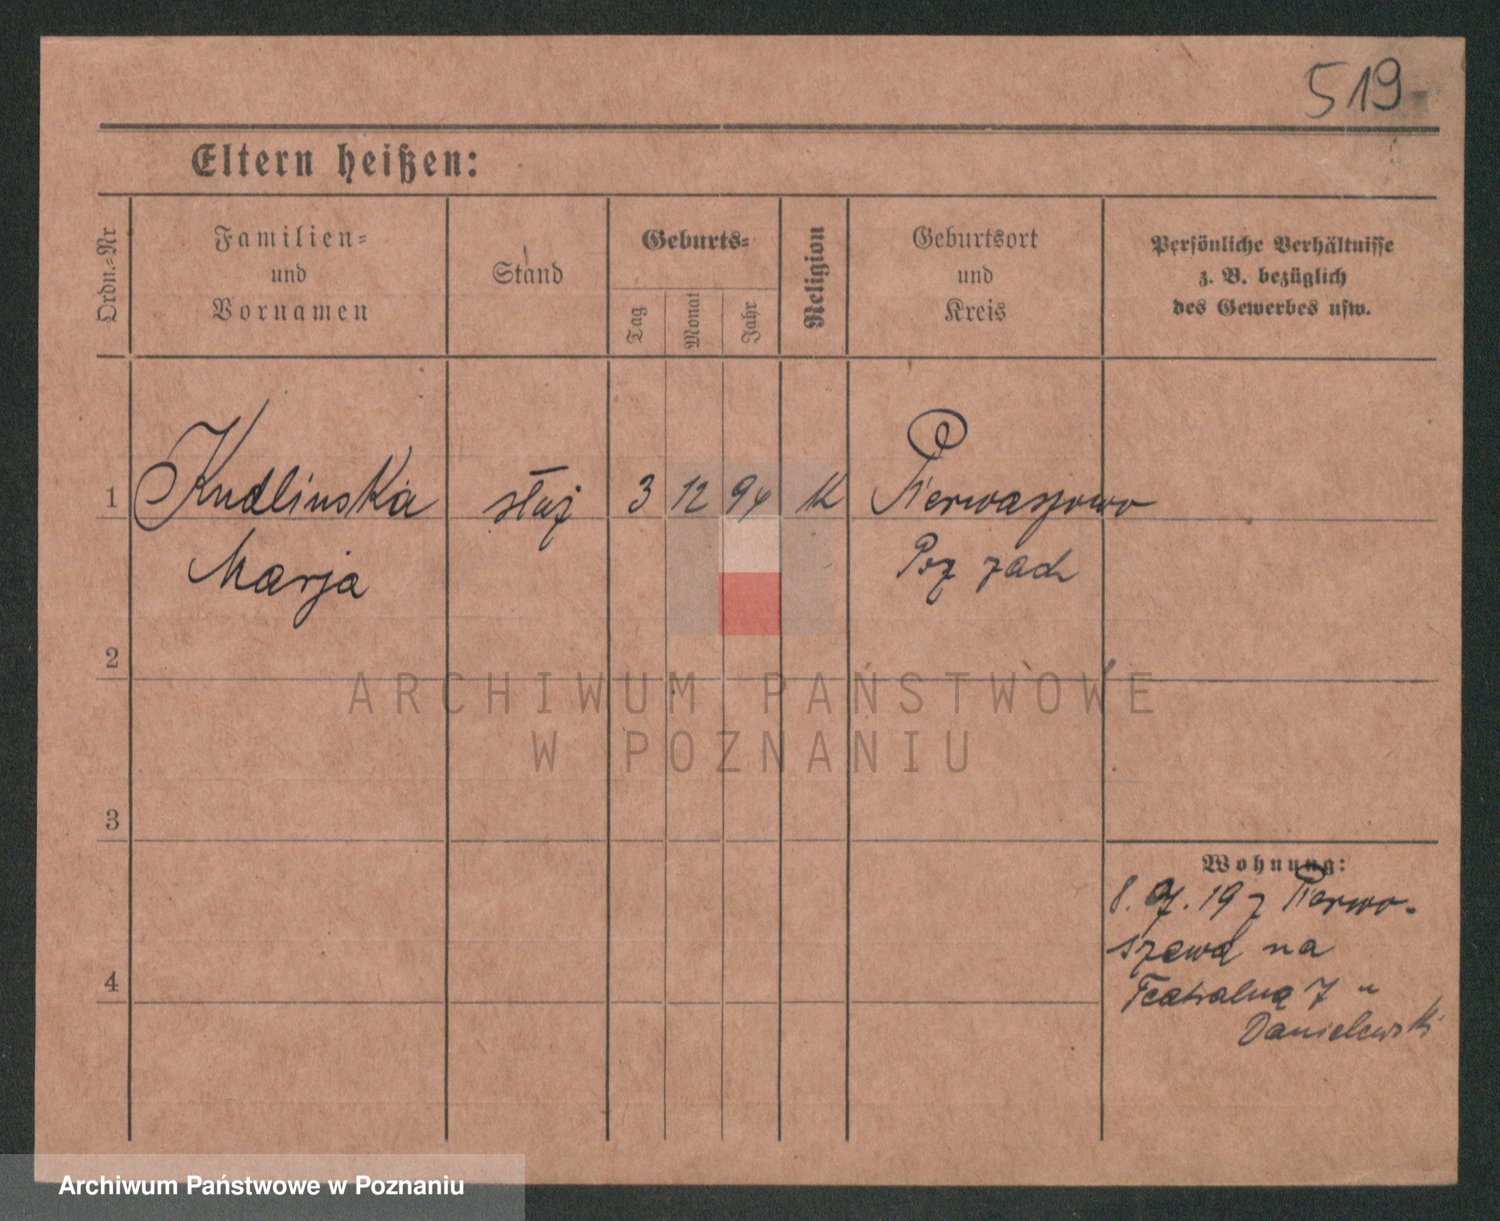 519
Eltern heißen:
Ordn.-Nr
Familien-
und
Vornamen
Stand
Geburts-
Tag
Monat
Jahr
Religion
Geburtsort
und
Kreis
Persönliche Verhältnisse
z. B. bezüglich
des Gewerbes usw.
1 Kudlinska służ 3 12 94 K Pierwaszowo
Marja Poz zach
2
3
4
Wohnung:
8. 19 z Pierwo-
szewa na
Teatralną 7 u
Danielewski
ARCHIWUM PAŃSTWOWE
W POZNANIU
Archiwum Państwowe w Poznaniu